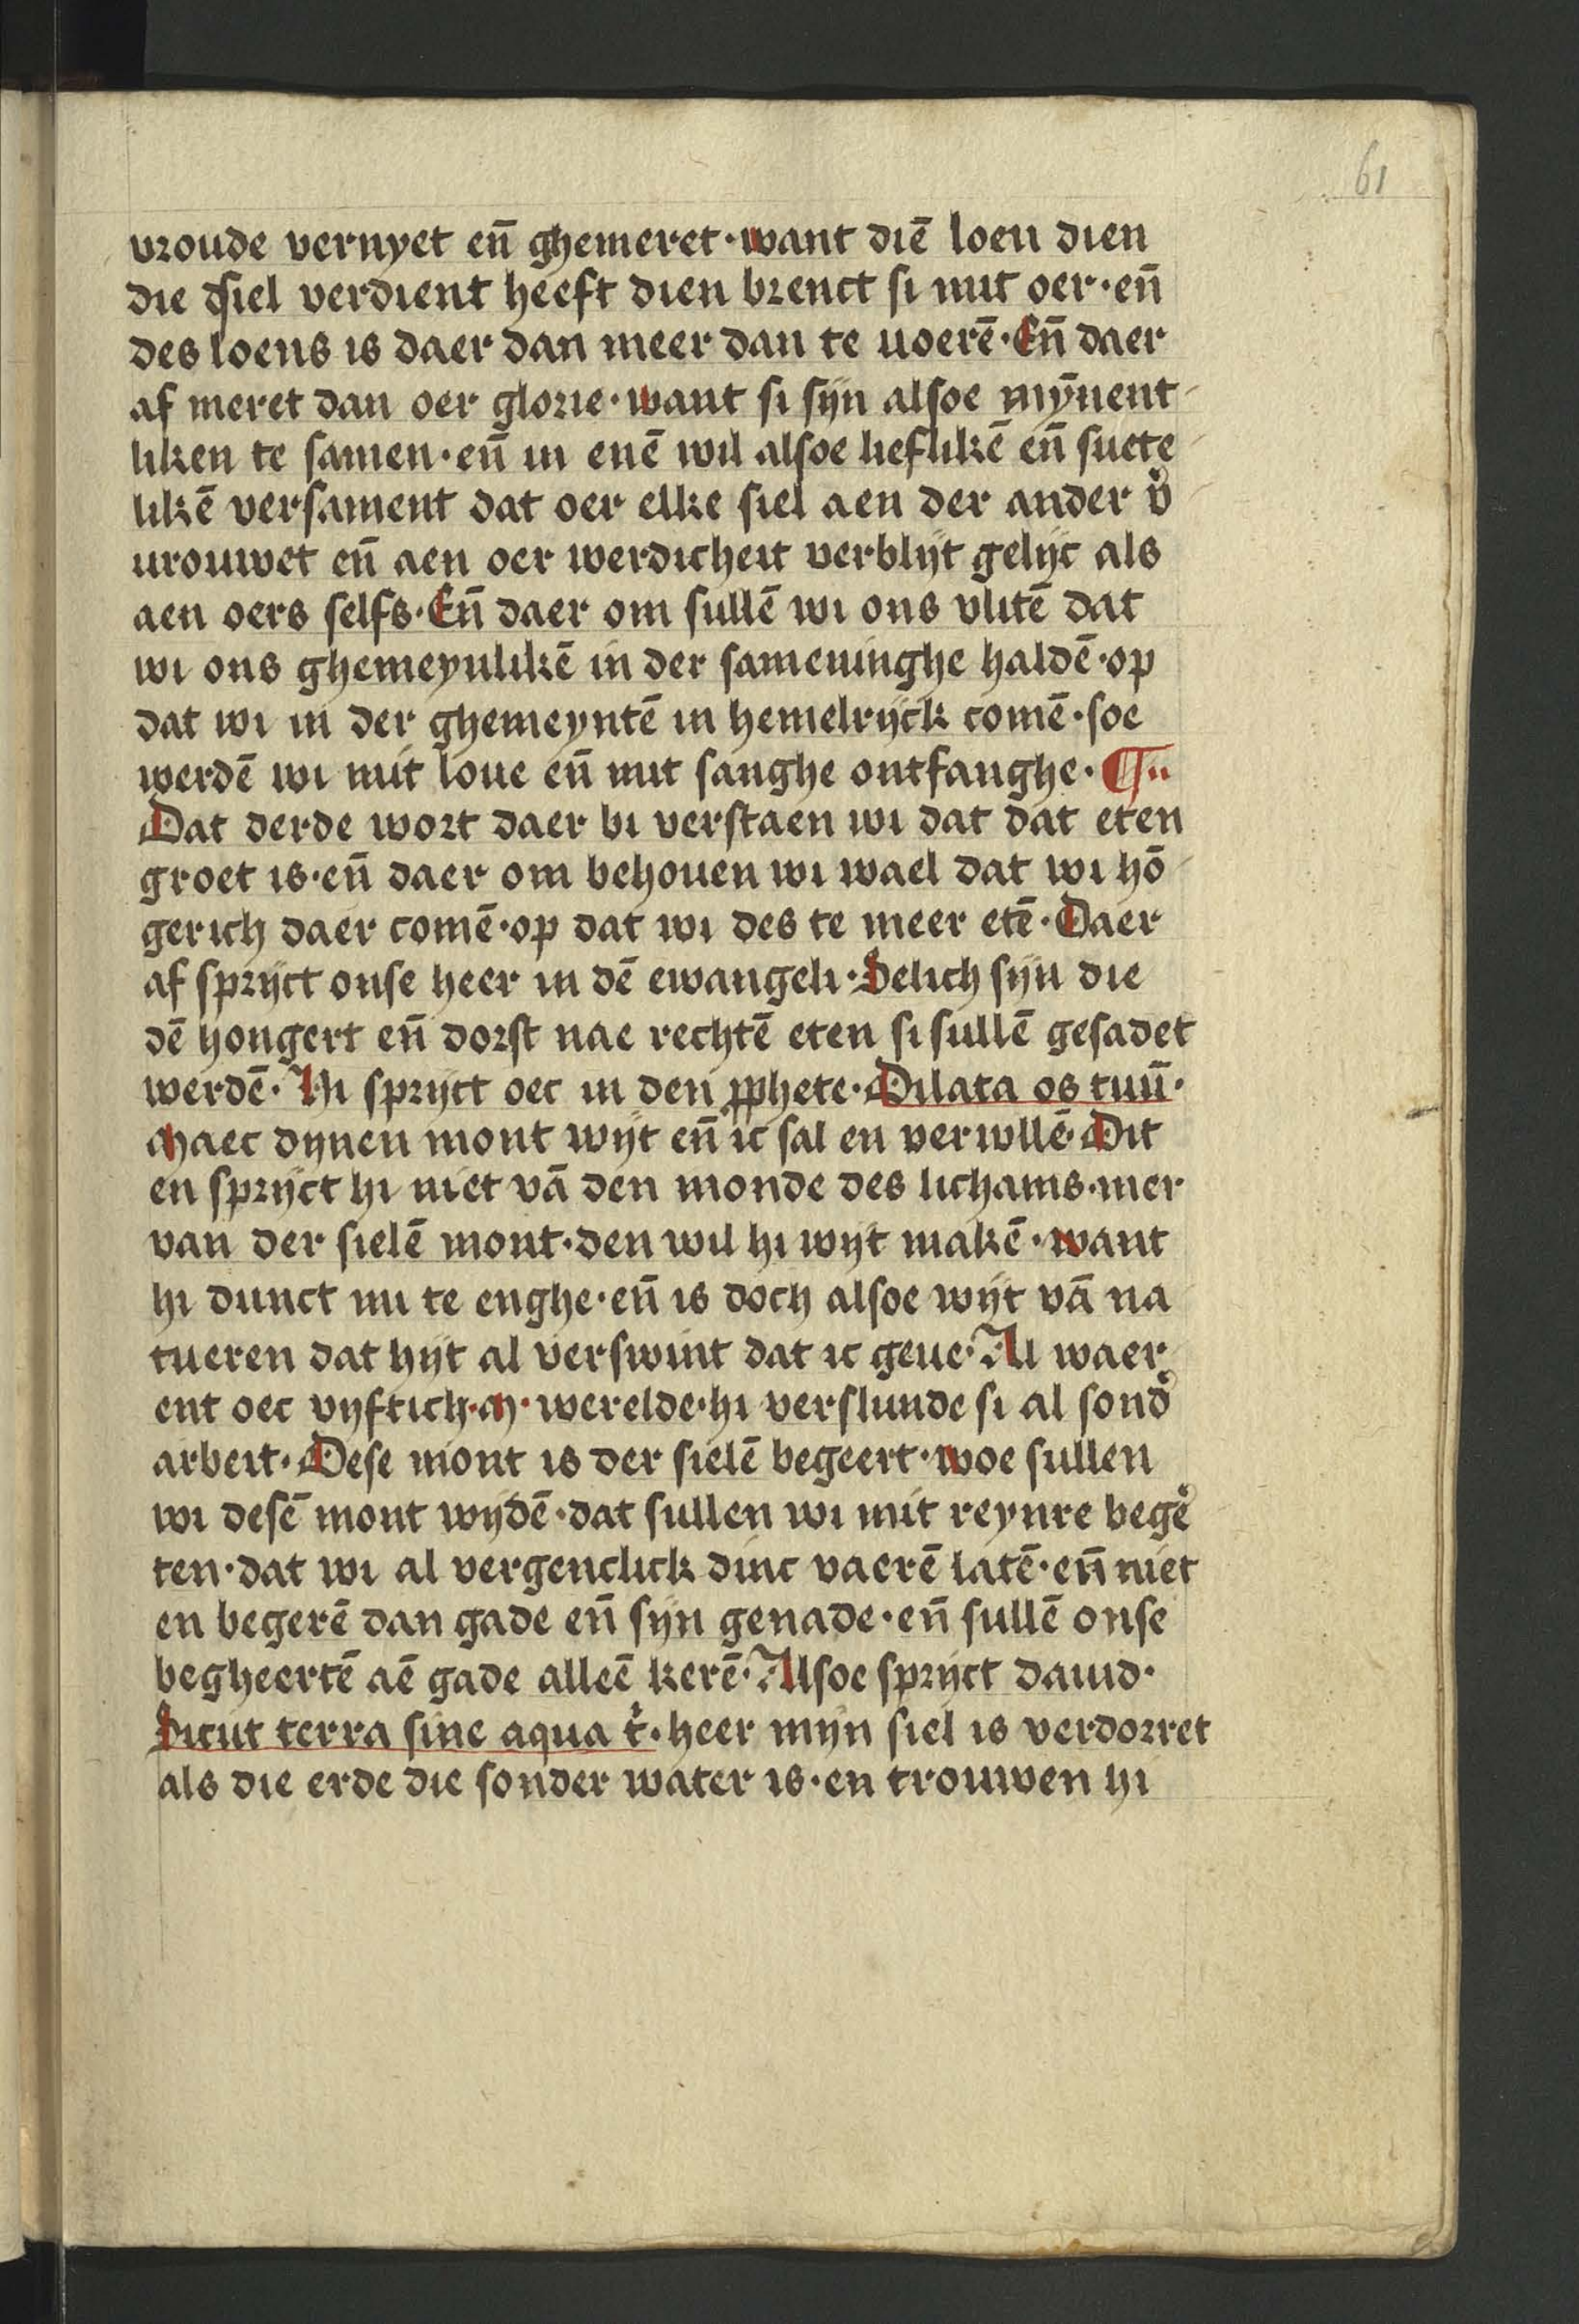 61
vroude vernyet en̄ ghemeret · want diē loen dien
die dsiel verdient heeft dien brenct si mit oer · en̄
des loens is daer dan meer dan te uoerē · En̄ daer
af meret dan oer glorie · want si sijn alsoe mȳnent
liken te samen · en̄ in enē wil alsoe lieflikē en̄ suete
likē versament dat oer elke siel aen der ander v̾
urouwet en̄ aen oer werdicheit verblijt gelijc als
aen oers selfs · En̄ daer om sullē wi ons vlitē dat
wi ons ghemeynlikē in der sameninghe haldē · op
dat wi in der ghemeyntē in hemelrijck comē · soe
werdē wi mit loue en̄ mit sanghe ontfanghe · ¶
Dat derde wort daer bi verstaen wi dat dat eten
groet is · en̄ daer om behouen wi wael dat wi hō
gerich daer comē · op dat wi des te meer etē · Daer
af sprijct onse heer in dē ewangeli · Selich sijn die
dē hongert en̄ dorst nae rechtē eten si sullē gesadet
werdē · Hi sprijct oec in den ꝓphete · Dilata os tuū ·
Maec dynen mont wijt en̄ ic sal en verwllē · Dit
en sprijct hi niet vā den monde des lichams · mer
van der sielē mont · den wil hi wijt makē · want
hi dunct mi te enghe · en̄ is doch alsoe wijt vā na
tueren dat hijt al verswint dat ic geue · Al waer
ent oec vyftich · M · werelde · hi verslunde si al sond̾
arbeit · Dese mont is der sielē begeert · woe sullen
wi desē mont wijdē · dat sullen wi mit reynre bege̾
ten · dat wi al vergenclick dinc vaerē latē · en̄ niet
en begerē dan gade en̄ sijn genade · en̄ sullē onse
begheertē aē gade alleē kerē · Alsoe sprijct dauid ·
Sicut terra sine aqua t̾ · heer mijn siel is verdorret
als die erde die sonder water is · en trouwen hi